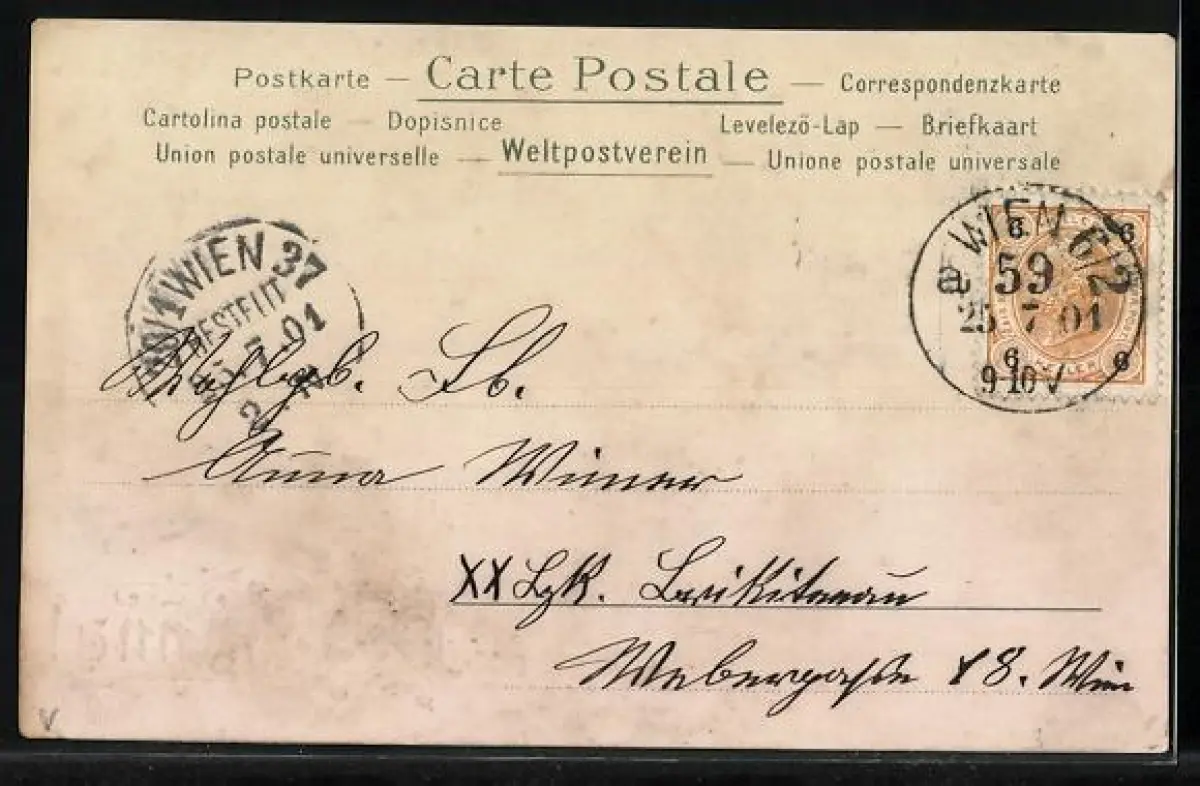 Postkarte — Carte Postale — Correspondenzkarte
Cartolina postale — Dopisnice Levelező-Lap — Briefkaart
Union postale universelle — Weltpostverein — Unione postale universale
WIEN 6/2
a 59
25 7 01
9-10 V
6 6
6 6
WIEN 37
BESTELLT
7 01
Wohlgeb. Frl.
Anna Wimmer
XX Bzk. Brigittenau
Webergasse 18. Wien